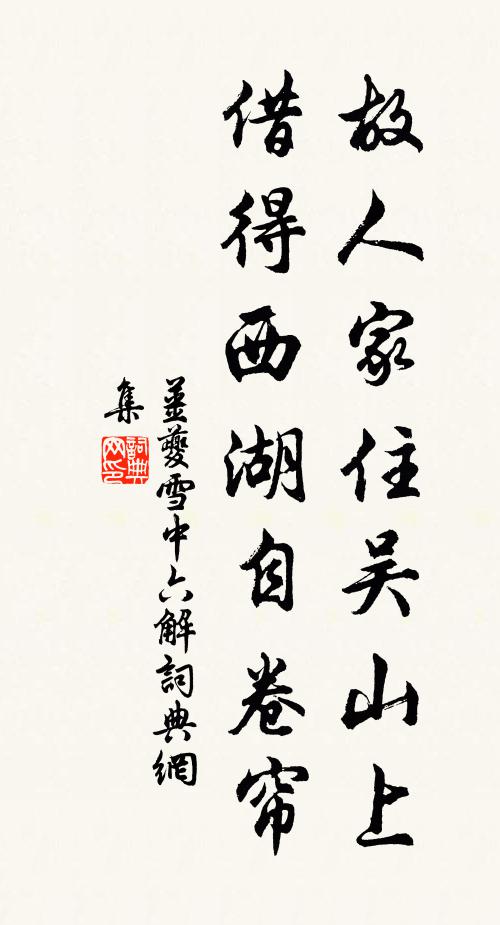 故人家住吴山上
借得西湖自卷帘
姜夔雪中六解詞典網
集
詞典
网印